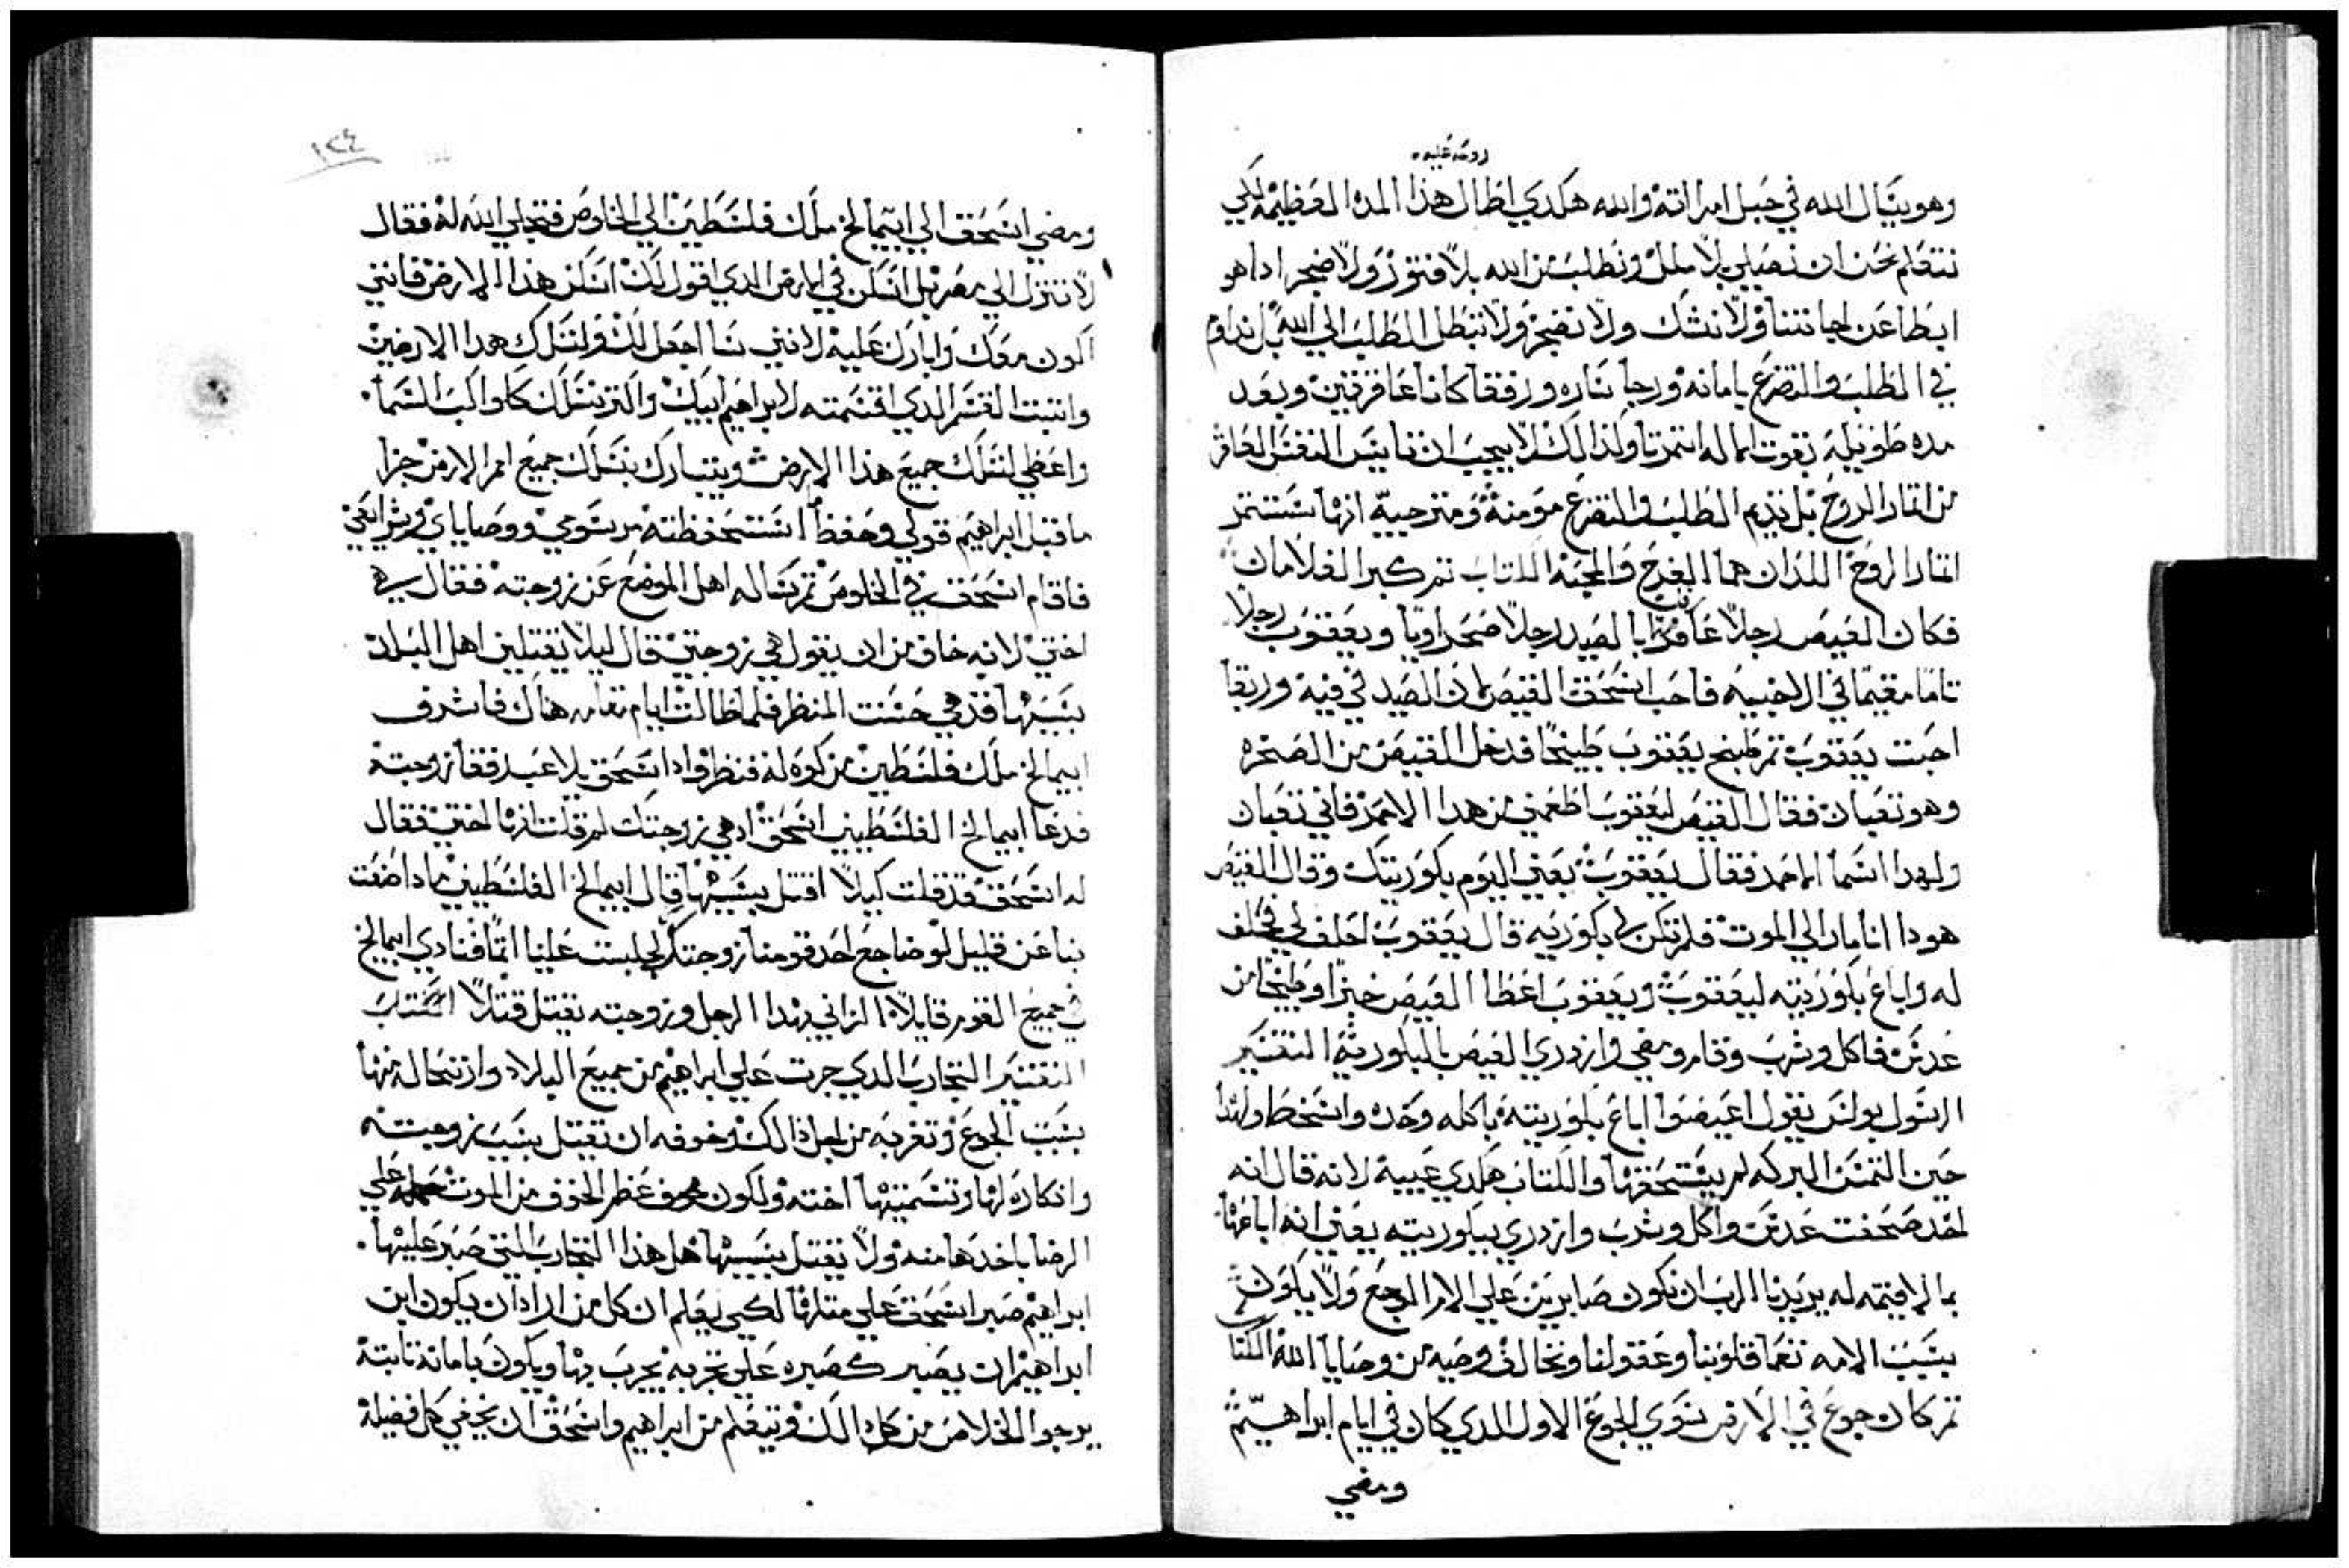 روحه عليه
وهو يسال الله في حبل امراته والله هكدي اطال هذا المده العظيمه لكي
نتعلم نحن ان نصلي بلا ملل ونطلب من الله بلا فتور ولا ضجر اداهو
ابطا عن اجابتنا ولا نشك ولا نضجر ولا نبطل الطلب الي الله بل نداوم
في الطلب والتضرع بامانه ورجا ساره ورفقا كانا عاقرتين وبعد
مده طويله بقوت الله اتمرتا ولذالك لا يجب ان تايس النفس العاقر
من اتمار الروح بل تديم الطلب والتضرع مومنة ومترجية انها ستتمر
اتمار الروح اللدان هما الفرح والمحبه الكتاب تم كبر الغلامان
فكان العيص رجلا عارف بالصيد رجلا صحراويا ويعقوب رجلا
تاما مقيما في الاخبيه فاحب اسحق العيص لان الصيد في فيه وربقا
احبت يعقوب تم طبخ يعقوب طبيخا فدخل العيص من الصحره
وهو تعبان فقال العيص ليعقوب اطعمني من هدا الاحمر فاني تعبان
ولهدا اسما الاحمر فقال يعقوب بعني اليوم بكوريتك وقال العيص
هودا انا مار الي الموت فلم تكن لي بكوريه قال يعقوب احلف لي فحلف
له واباع بكوريته ليعقوب ويعقوب اعطا العيص خبزا وطبيخا من
عدس فاكل وشرب وقام ومضي وازدري العيص بالبكورية التفسير
الرسول بولس يقول ان عيصوا اباع بكوريته باكله وحده واسخط ولهدا
حين التمس البركه لم يستحقها والكتاب هكدي عيبه لانه قال انه
اخد صحفت عدس واكل وشرب وازدري ببكوريته يعني انه اباعها
بما لا قيمه له يريدنا الرب ان نكون صابرين علي الامر الموجع ولا يكون
بسبب الامه تعما قلوبنا وعقولنا ونخالف وصيه من وصايا الله الكتاب
تم كان جوع في الارض سوي الجوع الاول الدي كان في ايام ابراهيم
ومضي
١٢٤
ومضي اسحق الي ابيمالخ ملك فلسطين الي الخلوص فتجلي الله له فقال
لا تنزل الي مصر بل اسكن في الارض الدي اقول لك اسكن هذا الارض فانني
اكون معك وابارك عليه لانني سا اجعل لك ولنسلك هدا الارضين
واتبت القسم الدي اقسمته لابراهيم ابيك واكتر نسلك كواكب السما
واعطي لنسلك جميع هذا الارض ويتبارك بنسلك جميع امم الارض جزا
ما قبل ابراهيم قولي وحفظ استحفظته مرسومي ووصاياي وشرايعي
فاقام اسحق في الخلوص تم ساله اهل الموضع عن زوجته فقال هي
اختي لانه خاف من ان يقول هي زوجتي قال ليلا يقتلني اهل البلد
بسببها قد هي حسنت المنظر فلما طالت ايام مقامه هناك فاشرف
ابيمالخ ملك فلسطين من كوه له فنظر واداسحق يلاعب رفقا زوجته
فدعا ابيمالخ الفلسطيني اسحق اد هي زوجتك لم قلت انها اختي فقال
له اسحق قد قلت كيلا اقتل بسببها قال ابيمالخ الفلسطيني مادا صنعت
بنا عن قليل لو ضاجع احد قومنا زوجتك لجلبت علينا اتما فنادي ابيمالخ
في جميع القوم قايلا الزاني بهدا الرجل وزوجته يقتل قتلا الكتاب
التفسير التجارب الدي جرت علي ابراهيم من جميع البلاد وارتحاله منها
بسبب الجوع وتغربه من اجل ذالك وخوفه ان تقتل بسبب زوجته
وانكاره لها وتسميتها اخته ولكون خوف عظم الخوف من الموت حمله علي
الرضا باخدها منه ولا يقتل بسببها هل هذا التجارب التي صبر عليها
ابراهيم صبر اسحق علي متلها لكي يعلم ان كل من اراد ان يكون ابن
ابراهيم ان يصبر كصبره علي تجربه يجرب بها ويكون بامانة تابتة
يرجوا الخلاص من كل ذالك ويتعلم من ابراهيم واسحق ان يخفي كل فضيلة